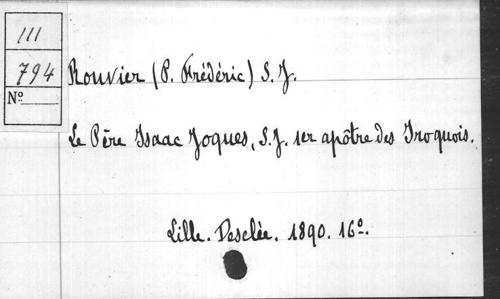 III
794
Nº
Rouvier (P. Frédéric) S. J.
Le Père Isaac Jogues, S. J. 1er apôtre des Iroquois.
Lille. Desclée. 1890. 16º.